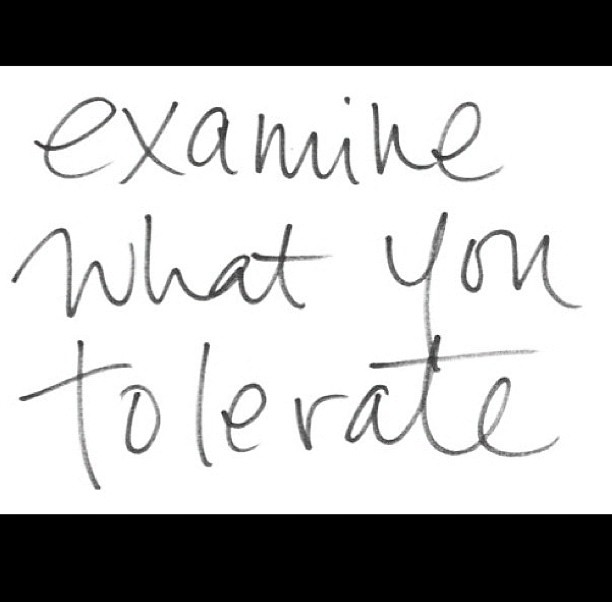 examine
what you
tolerate